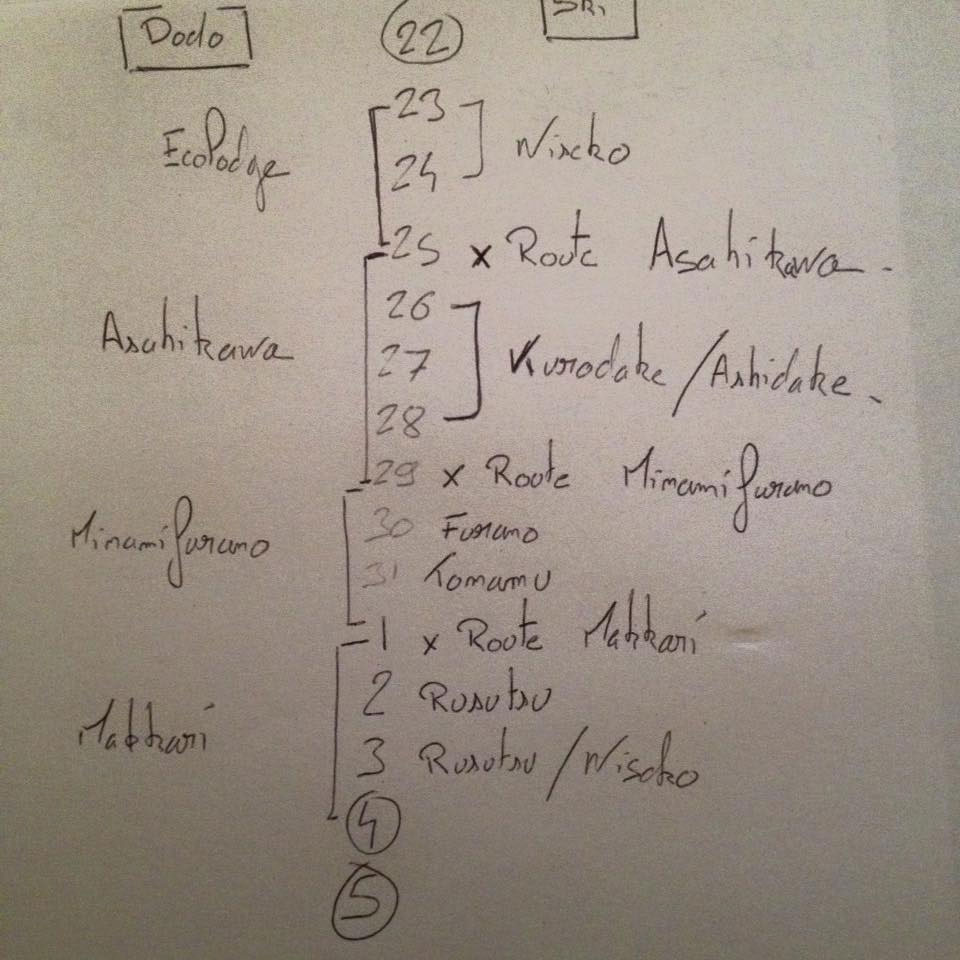 Dodo 22 Ski
23
Ecolodge 24 Niseko
25 x Route Asahikawa.
26
Asahikawa 27 Kurodake / Ashidake.
28
29 x Route Minamifurano
Minamifurano 30 Furano
31 Tomamu
1 x Route Makkari
2 Rusutsu
Makkari 3 Rusutsu / Niseko
4
5